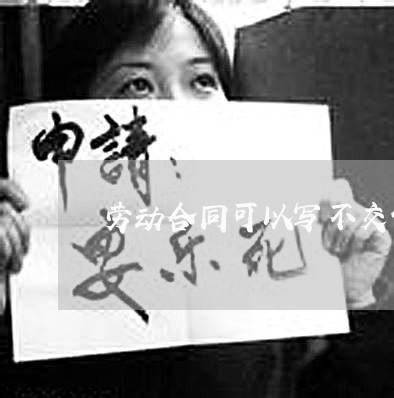 申請：
劳动合同可以写不交
安乐死